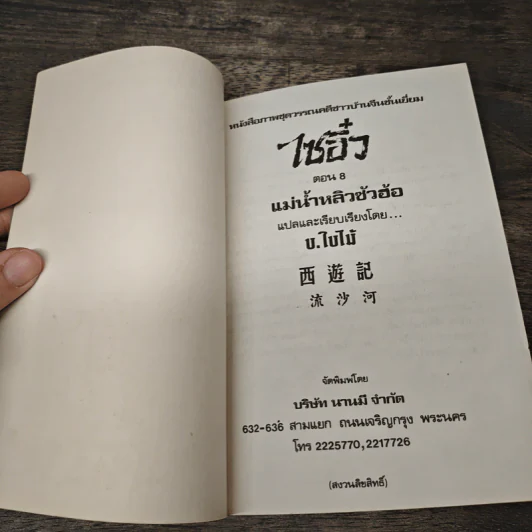 หนังสือภาพชุดวรรณคดีชาวบ้านจีนชั้นเยี่ยม
ไซอิ๋ว
ตอน 8
แม่น้ำหลิวซัวฮ้อ
แปลและเรียบเรียงโดย...
บ.ใบไม้
西遊記
流沙河
จัดพิมพ์โดย
บริษัท นานมี จำกัด
632-636 สามแยก ถนนเจริญกรุง พระนคร
โทร 2225770,2217726
(สงวนลิขสิทธิ์)